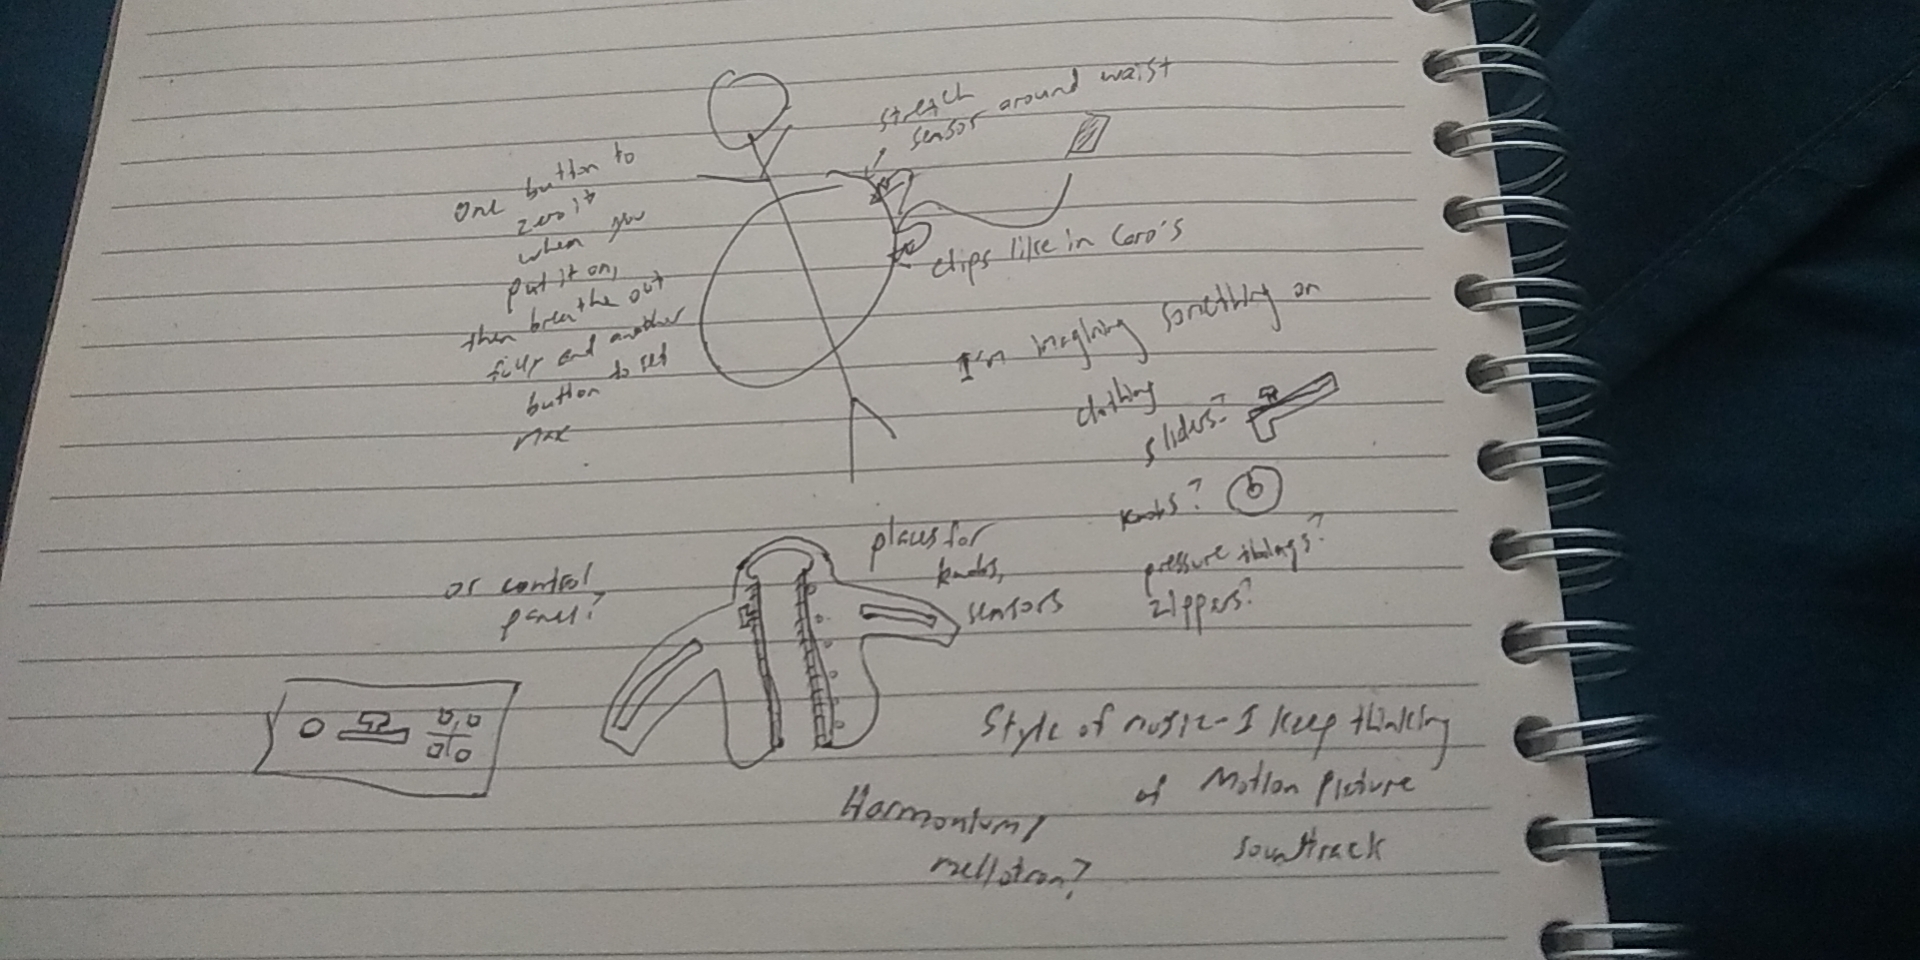 stretch
sensor around waist
One button to
zero it
when you
put it on,
then breathe out
fully and another
button to set
max
clips like in Caro's
I'm imagining something on
clothing
sliders?
knobs?
pressure things?
zippers?
places for
knobs,
sensors
or control
panel?
Style of music - I keep thinking
of Motion Picture
soundtrack
Harmonium/
mellotron?